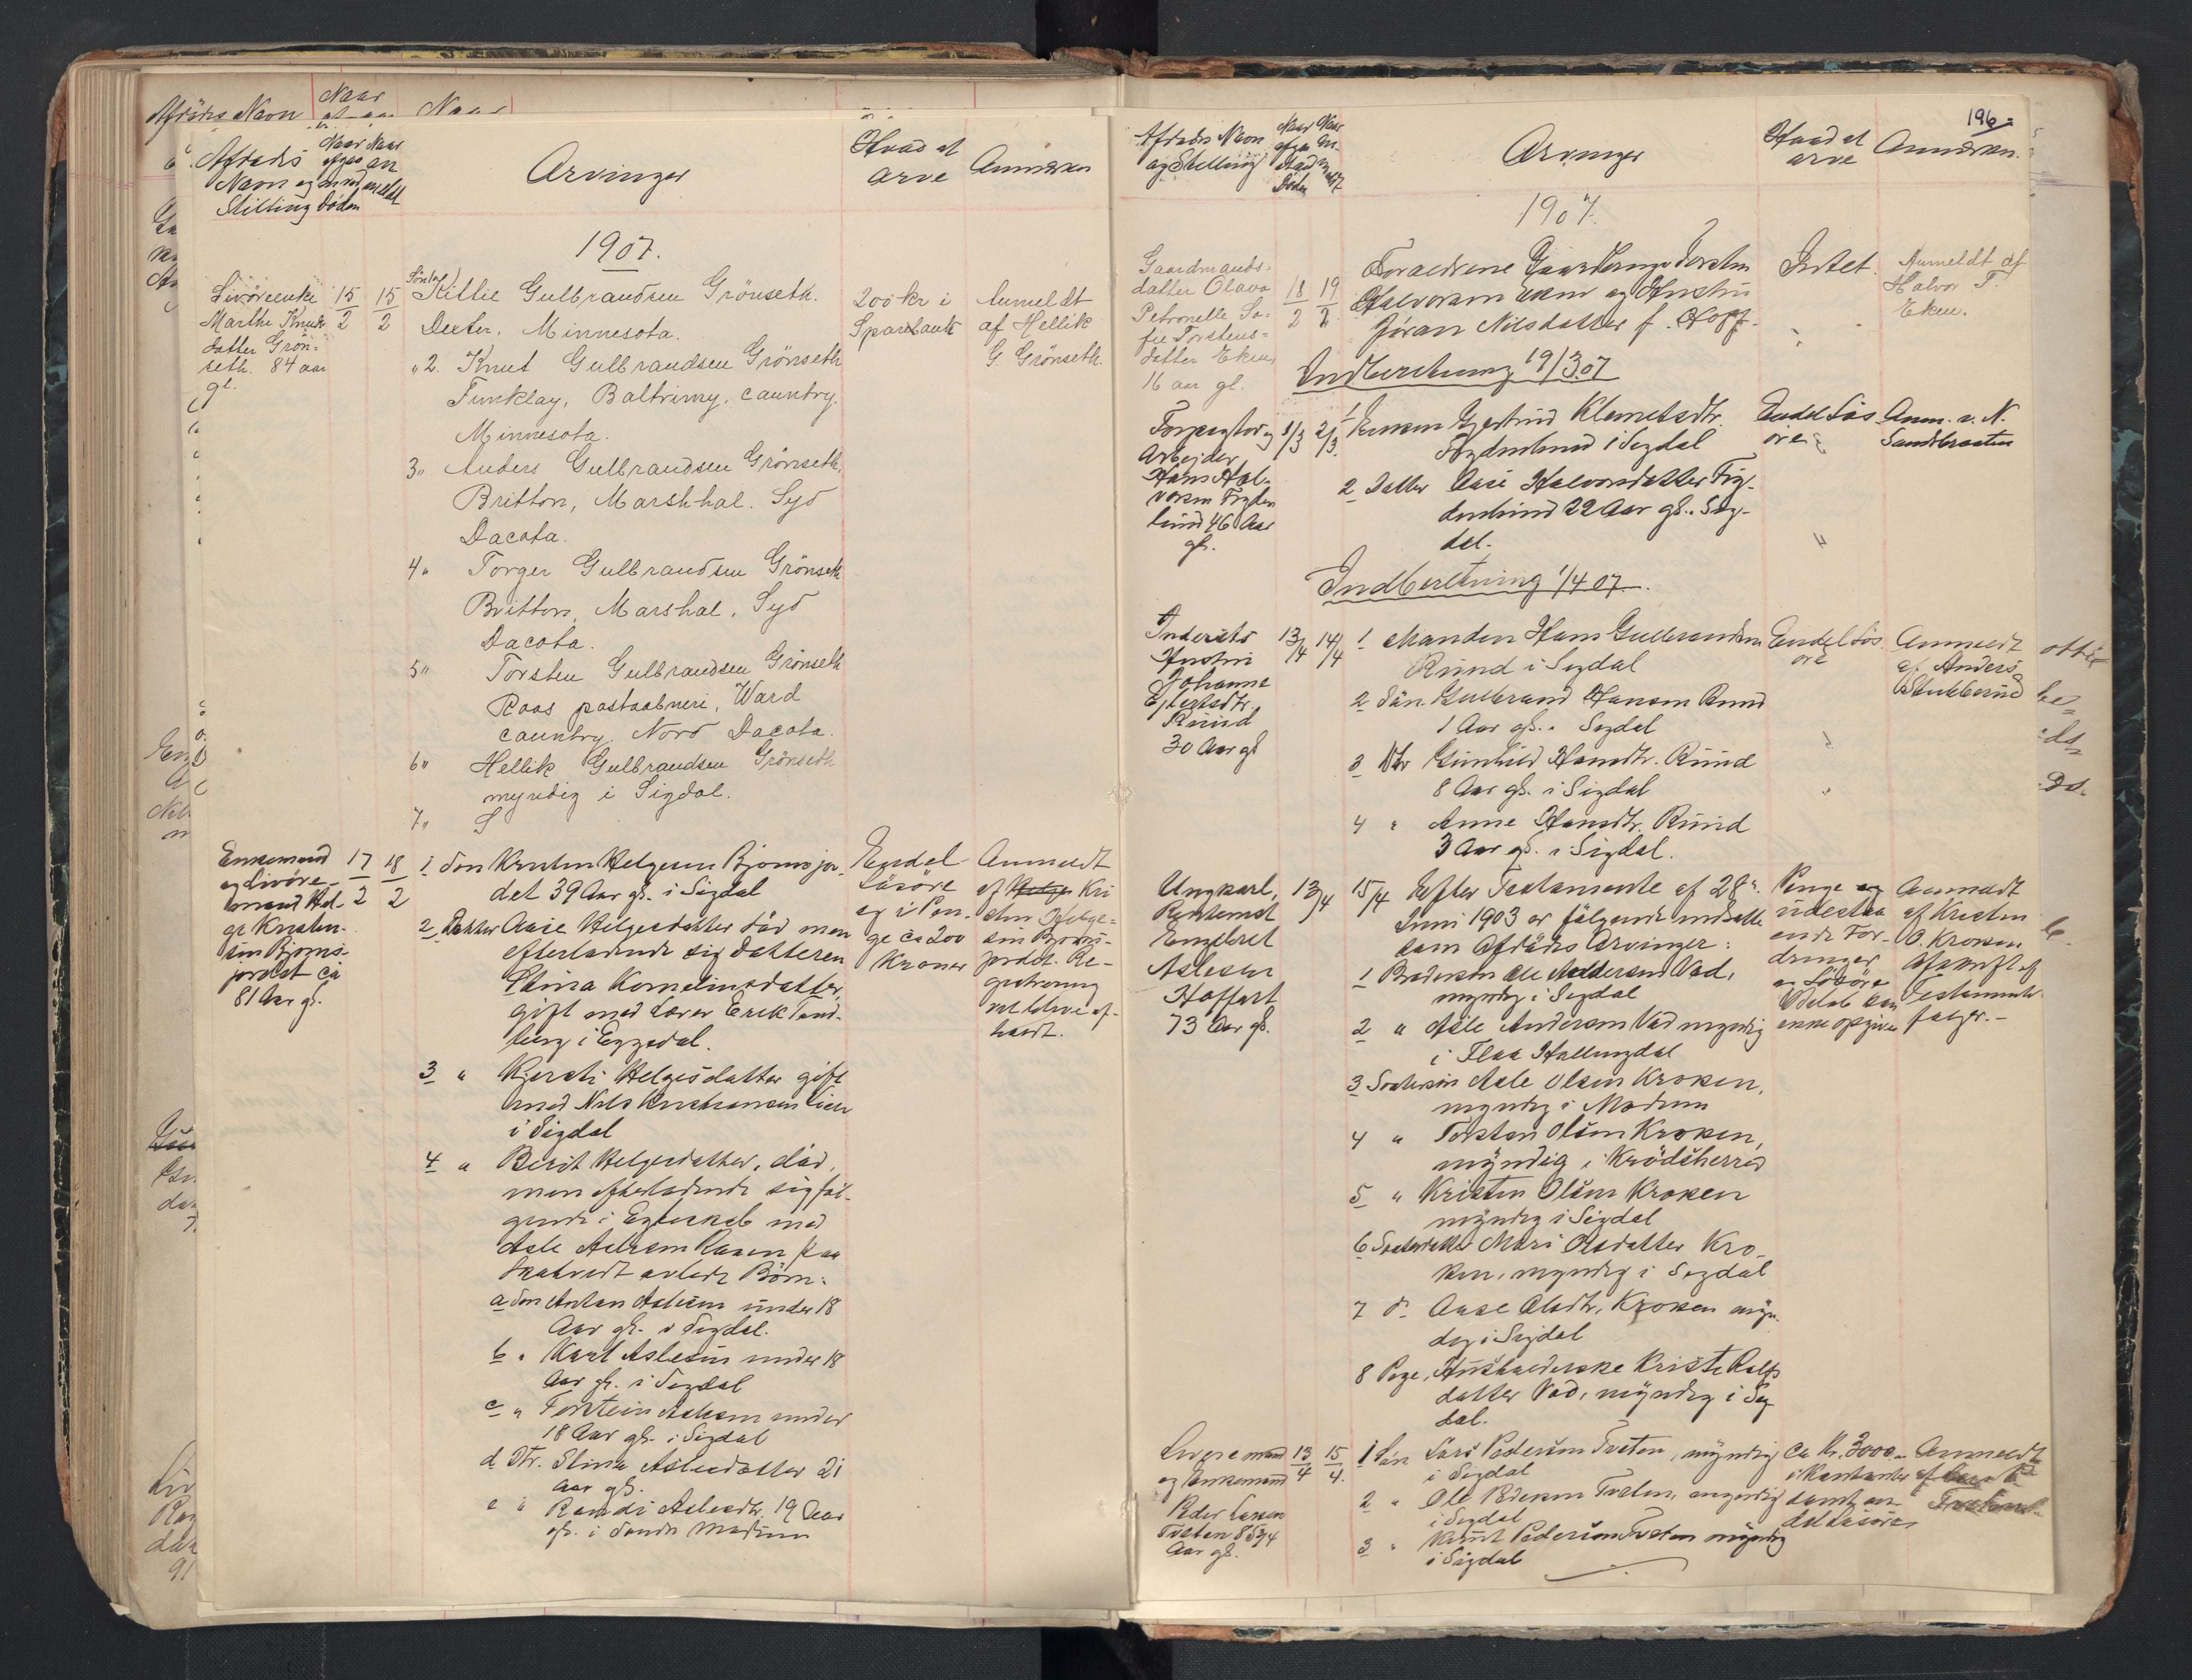 Afdødes Navn
Naar
Naar
Afdødes
Navn og
Stilling
Naar
afgaa
ved
døden
Naar
an
meldt
Arvinger
Hvad at
arve
Anmærkn
1907.
Livöreenke
Marthe Knuds
datter Grön-
seth. 84 aar
gl.
15/2
15/2
Sönn
Kittil Gulbrandsen Grönseth.
Dexter, Minnesota.
"2. Knut Gulbrandsen Grönseth
Funklay, Baltrimy. cauntry.
Minnesota.
3" Anders Gulbrandsen Grönseth,
Britton, Marshhal. Syd
Dacota.
4" Torger Gulbrandsen Grönseth
Britton, Marshal. Syd
Dacota.
5" Torsten Gulbrandsen Grönseth
Roos postaabneri, Ward
cauntry. Nord Dacota.
6" Hellik Gulbrandsen Grönseth
myndig i Sigdal.
7" S
200 kr i
Sparebank
Anmeldt
af Hellik
G. Grönseth.
Enkemand
og Livöre-
mand Hel-
ge Kristen-
sen Bjorns-
jordet ca
81 Aar gl.
17/2
18/2
1 Søn Kristen Helgesen Bjornsjor-
det 39 Aar gl. i Sigdal
2 Datter Aase Helgesdatter död men
efterladende sig Datteren
Stina Kornelinsdatter,
gift med Lærer Erik Tand-
berg i Eggedal.
3 " Kjersti Helgesdatter gift
med Nils Kristiansen Lien
i Sigdal
4 " Berit Helgesdatter, död,
men efterladende sig föl-
gende i Egteskab med
Asle Aslesen Raaen paa
Skatvedt avlede Börn:
a Søn Anton Aslesen under 18
Aar gl. i Sigdal.
b " Karl Aslesen under 18
Aar gl. i Sigdal
c " Torstein Aslesen under
18 Aar gl. i Sigdal
d Dtr. Stina Aslesdatter 21
Aar gl.
e " Randi Aslesdtr. 19 Aar
gl. i Søndre Modum
Endel
Lösöre
og i Pen-
ge ca 200
Kroner
Anmeldt
af Helge Kri
sten Helge-
sen Bjorns-
jordet. Re-
gistrering
vil blive af-
holdt.
196
Afdødes Navn
og Stilling
Naar
afgaa
ved
Döden
Naar
An-
meldt
Arvinger
Hvad at
arve
Anmærkn.
1907.
Gaardmands-
datter Olava
Petronelle So-
fie Torstens-
datter Eken,
16 aar gl.
18/2
19/2
Foraeldrene Gaardbruger Torsten
Halvorsen Eken og Hustru
Jöran Nilsdatter f. Hopf-
Intet.
Anmeldt af
Halvor T.
Eken.
Indberetning 19/3 07
Forpagter og
Arbejder
Hans Hal-
vorsen Frydn
lund 46 Aar
gl.
1/3
2/3.
1 Enken Gjertrud Klemetsdtr.
Frydenlund i Sigdal
2 Datter Aase Halvorsdatter Fry-
denlund 22 Aar gl. Sig-
dal.
Endel Lös
öre
Anm. v. N.
Sandbraaten
Indberetning 1/4 07.
Inderøsts
Hustru
Johanne
Ejlertsdtr.
Rund
30 Aar gl
13/4
14/4
1 Manden Hans Gulbrandsen
Rund i Sigdal
2 Sön Gulbrand Hansen Rund
1 Aar gl. Sigdal
3 Dtr Gunhild Hansdtr. Rund
8 Aar gl. i Sigdal
4 " Anne Hansdtr. Rund
3 Aar gl. i Sigdal.
Endel Lös-
öre
Anmeldt
af Anders
Stubberud
Ungkarl,
Rentenist
Engebret
Aslesen
Hoffart
73 Aar gl.
13/4
15/4
Efter Testamente af 28de
Juni 1903 er fölgende indsatte
som Afdödes Arvinger:
1 Brodersøn Ole Andersen Vad,
myndig i Sigdal
2 " Asle Andersen Vad myndig
i Flaa Hallingdal
3 Søstersøn Asle Olsen Kroken,
myndig i Modum
4 " Torsten Olsen Kroken,
myndig i Krödsherred
5 " Kristen Olsen Kroken
myndig i Sigdal
6 Søsterdatter Mari Olsdatter Kro-
ken, myndig i Sigdal
7 do Aase Olsdtr. Kroken myn-
dig i Sigdal
8 Pige, Husholderske Kristi Rolfs
datter Vad, myndig i Sig
dal.
Penge og
udestaa
ende For-
dringer
og Lösöre
Belöb kan
ikke opgives
Anmeldt
af Kristen
O. Kroken
Afskrift af
Testamente
fölger.-
Livöremand
og Enkemand
Peder Larsen
Tveten 85 3/4
Aar gl.
13/4
15/4.
1 Sön Lars Pedersen Tveten, myndig
i Sigdal
2 " Ole Pedersen Tveten, myndig
i Sigdal
3 " Knut Pedersen Tveten myndig
i Sigdal
Ca Kr. 3000.-
i Kontanter
samt en
del Lösöre,
Anmeldt
af